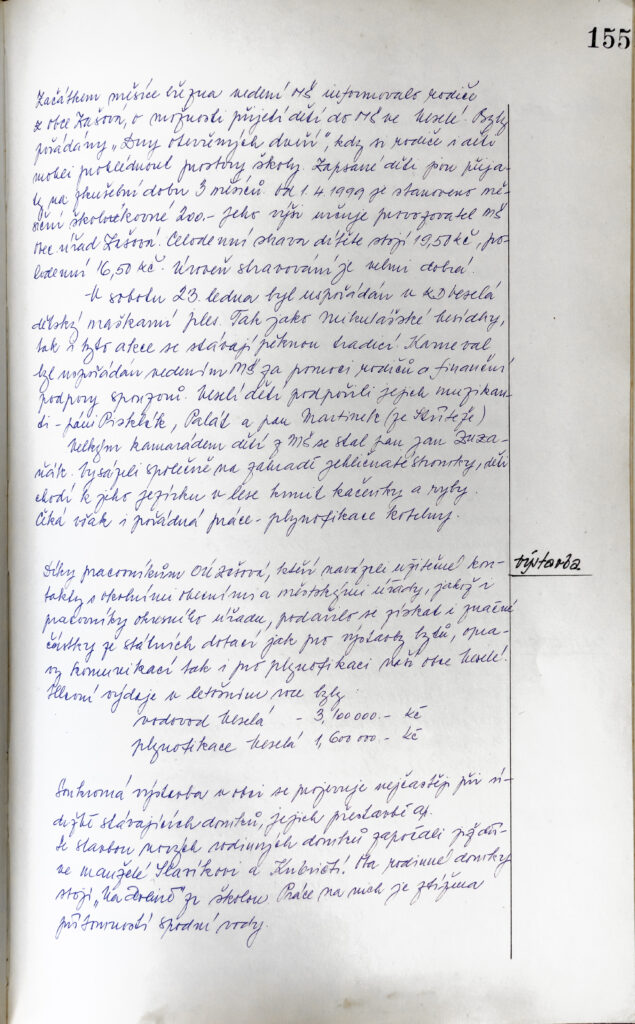 155
Začátkem měsíce března vedení MŠ informovalo rodiče
z obce Zašová, o možnosti přijetí dětí do MŠ ve Veselé. Byly
pořádány „Dny otevřených dveří", kdy si rodiče i děti
mohli prohlédnout prostory školy. Zapsané děti jsou přija-
ty na zkušební dobu 3 měsíců. Od 1.4.1999 je stanoveno mě-
síční školné 200.- jeho výši určuje provozovatel MŠ
Obec. úřad Zašová. Celodenní strava dítěte stojí 19,50 Kč, po-
lodenní 16,50 Kč. Úroveň stravování je velmi dobrá.
V sobotu 23. ledna byl uspořádán v KD Veselá
dětský maškarní ples. Tak jako mikulášské besídky,
tak i tyto akce se stávají pěknou tradicí. Karneval
byl uspořádán vedením MŠ za pomoci rodičů a finanční
podpory sponzorů. Veselí děti podpořili jejich muzikan-
ti - páni Palát a pan Martinek (ze Střítěže)
Velkým kamarádem dětí z MŠ se stal pan Jan
Vysázeli společně na zahradě jehličnaté stromky, děti
chodí k jeho jezírku v lese krmit kačenky a ryby.
Čeká však i pořádná práce - plynofikace kotelny.
Díky pracovníkům OÚ Zašová, kteří navázali užitečné kon-
takty s okolními obcemi a městskými úřady, jakož i
pracovníky okresního úřadu, podařilo se získat i značné
částky ze státních dotací jak pro výstavby bytů, opra-
vy komunikací tak i pro plynofikaci naší obce Veselé.
výstavba
Hlavní výdaje v letošním roce byly:
vodovod Veselá - 3,100 000.- Kč
plynofikace Veselá 1,600 000.- Kč
Soukromá výstavba v obci se projevuje nejčastěji při ú-
držbě stávajících domků, jejich přestavbě aj.
Se stavbou nových rodinných domků započali
manželé Slavíkovi a Kubrichtí. Oba rodinné domky
stojí „Na Dolině" za školou. Práce na nich je ztížena
přítomností spodní vody.